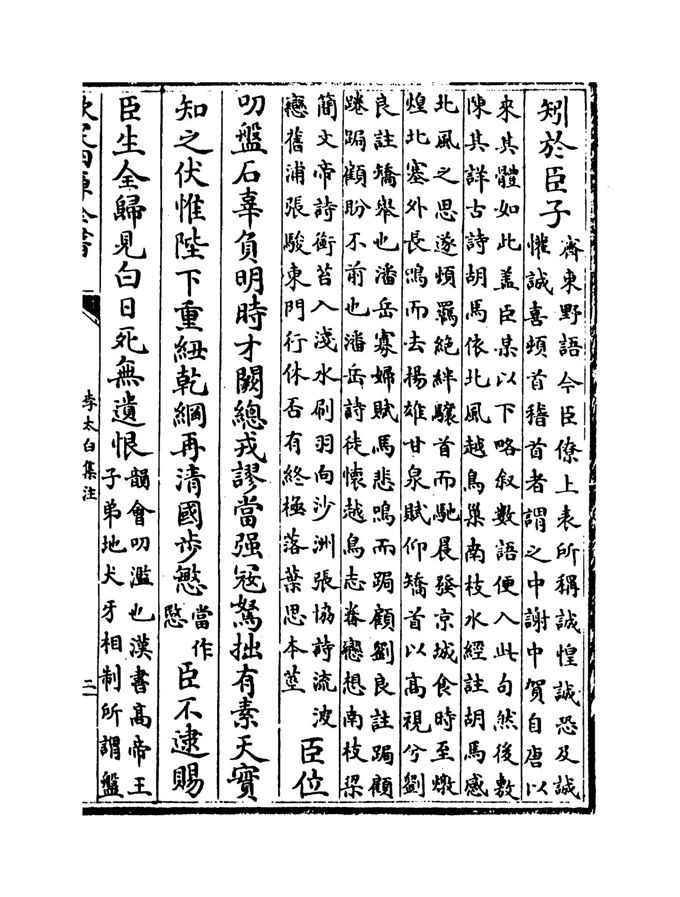 矧於臣子
齊東野語今臣僚上表所稱誠惶誠恐及誠
惟誠喜頓首稽首者謂之中謝中賀自唐以
來其體如此蓋臣某以下略叙數語便入此句然後敷
陳其詳古詩胡馬依北風越鳥巢南枝水經註胡馬感
北風之思遂頓羈絶絆驤首而馳晨發京城食時至燉
煌北塞外長鳴而去揚雄甘泉賦仰矯首以髙視兮劉
良註矯舉也潘岳寡婦賦馬悲鳴而跼顧劉良註跼顧
踡跼顧盼不前也潘岳詩徒懷越鳥志眷戀想南枝梁
簡文帝詩銜苔入淺水刷羽向沙洲張協詩流波
戀舊浦張駿東門行休否有終極落葉思本莖
臣位
叨盤石辜負明時才闕總戎謬當强寇駑拙有素天實
知之伏惟陛下重紐乾綱再清國步慜
當作
愍
臣不逮賜
臣生全歸見白日死無遺恨
韻會叨濫也漢書髙帝王
子弟地犬牙相制所謂盤
欽定四庫全書
李太白集注
二